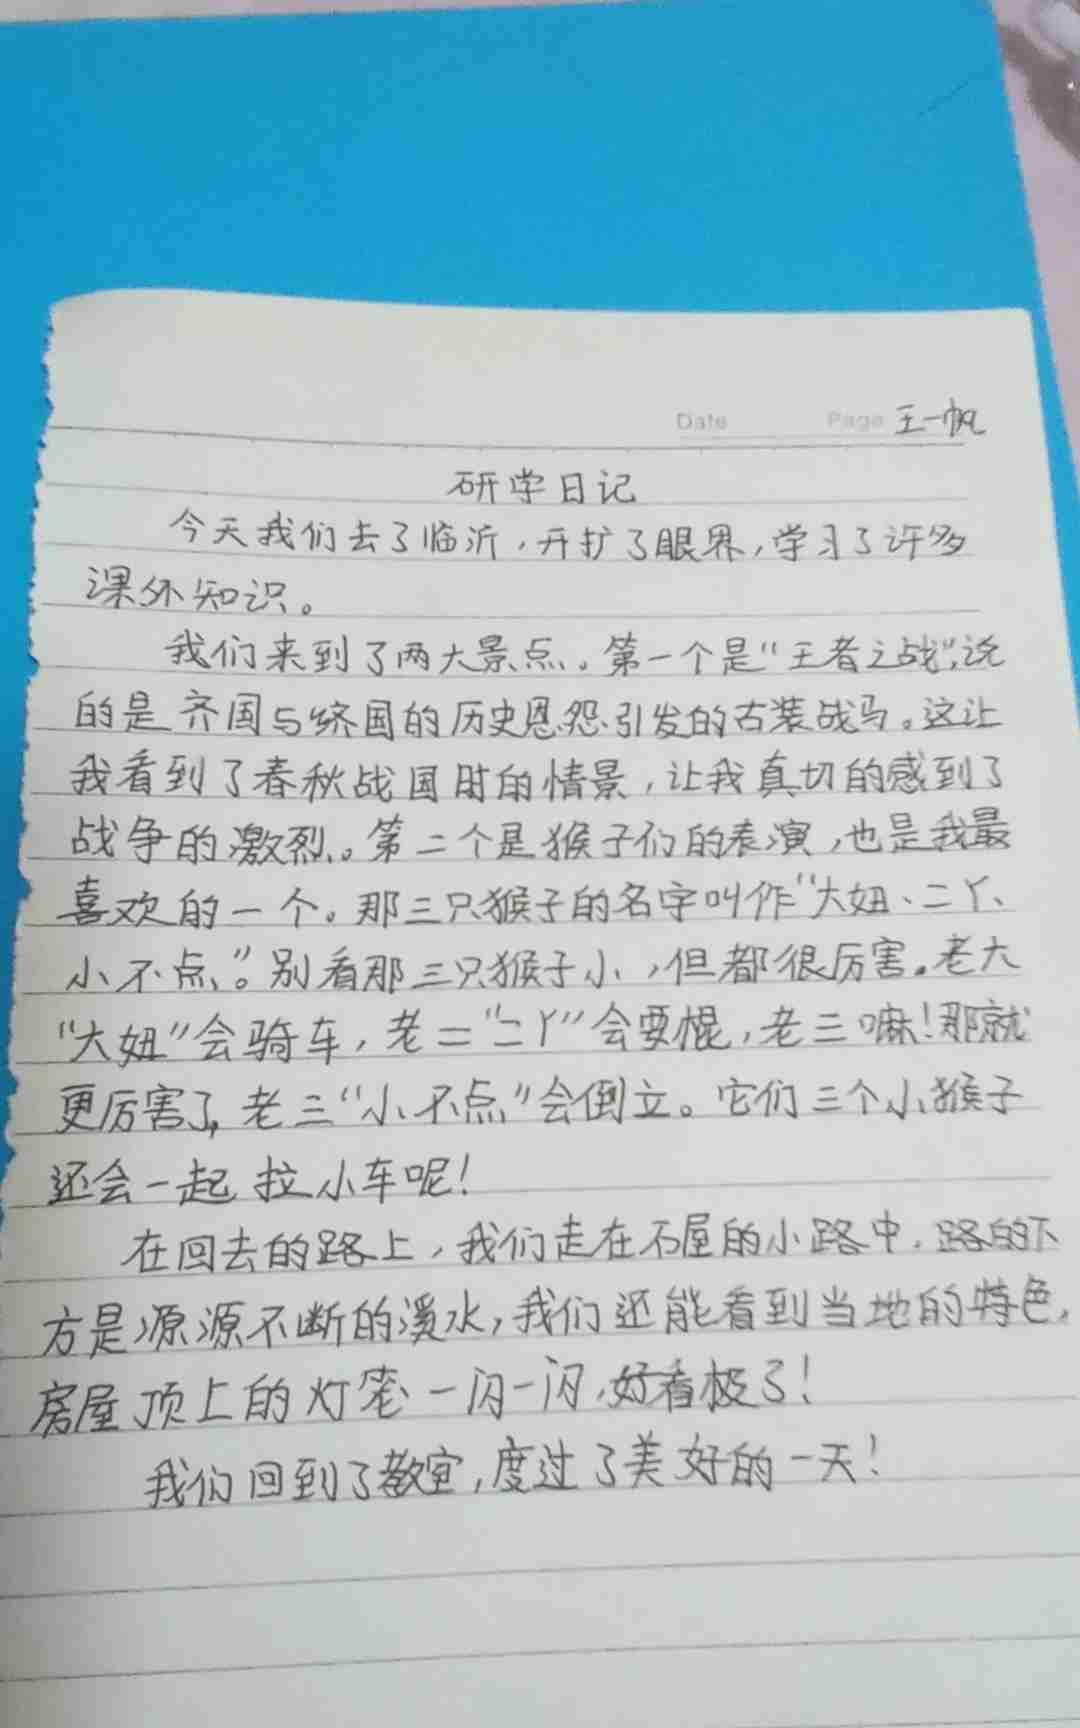 Date Page 王一帆
研学日记
今天我们去了临沂，开扩了眼界，学习了许多
课外知识。
我们来到了两大景点。第一个是“王者之战”，说
的是齐国与纪国的历史恩怨引发的古装战马。这让
我看到了春秋战国时的情景，让我真切的感到了
战争的激烈。第二个是猴子们的表演，也是我最
喜欢的一个。那三只猴子的名字叫作“大妞、二丫、
小不点”。别看那三只猴子小，但都很厉害。老大
“大妞”会骑车，老二“二丫”会耍棍，老三嘛！那就
更厉害了，老三“小不点”会倒立。它们三个小猴子
还会一起拉小车呢！
在回去的路上，我们走在石屋的小路中，路的下
方是源源不断的溪水，我们还能看到当地的特色，
房屋顶上的灯笼一闪一闪，好看极了！
我们回到了教室，度过了美好的一天！